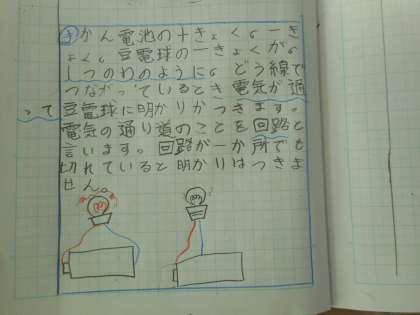 かん電池の+きょく、-き
ょく、豆電球の-きょくが、
1つのわのように、どう線で
つながっているとき電気が通
って豆電球に明かりがつきます。
電気の通り道のことを回路と
言います。回路が一か所でも
切れていると明かりはつきま
せん。